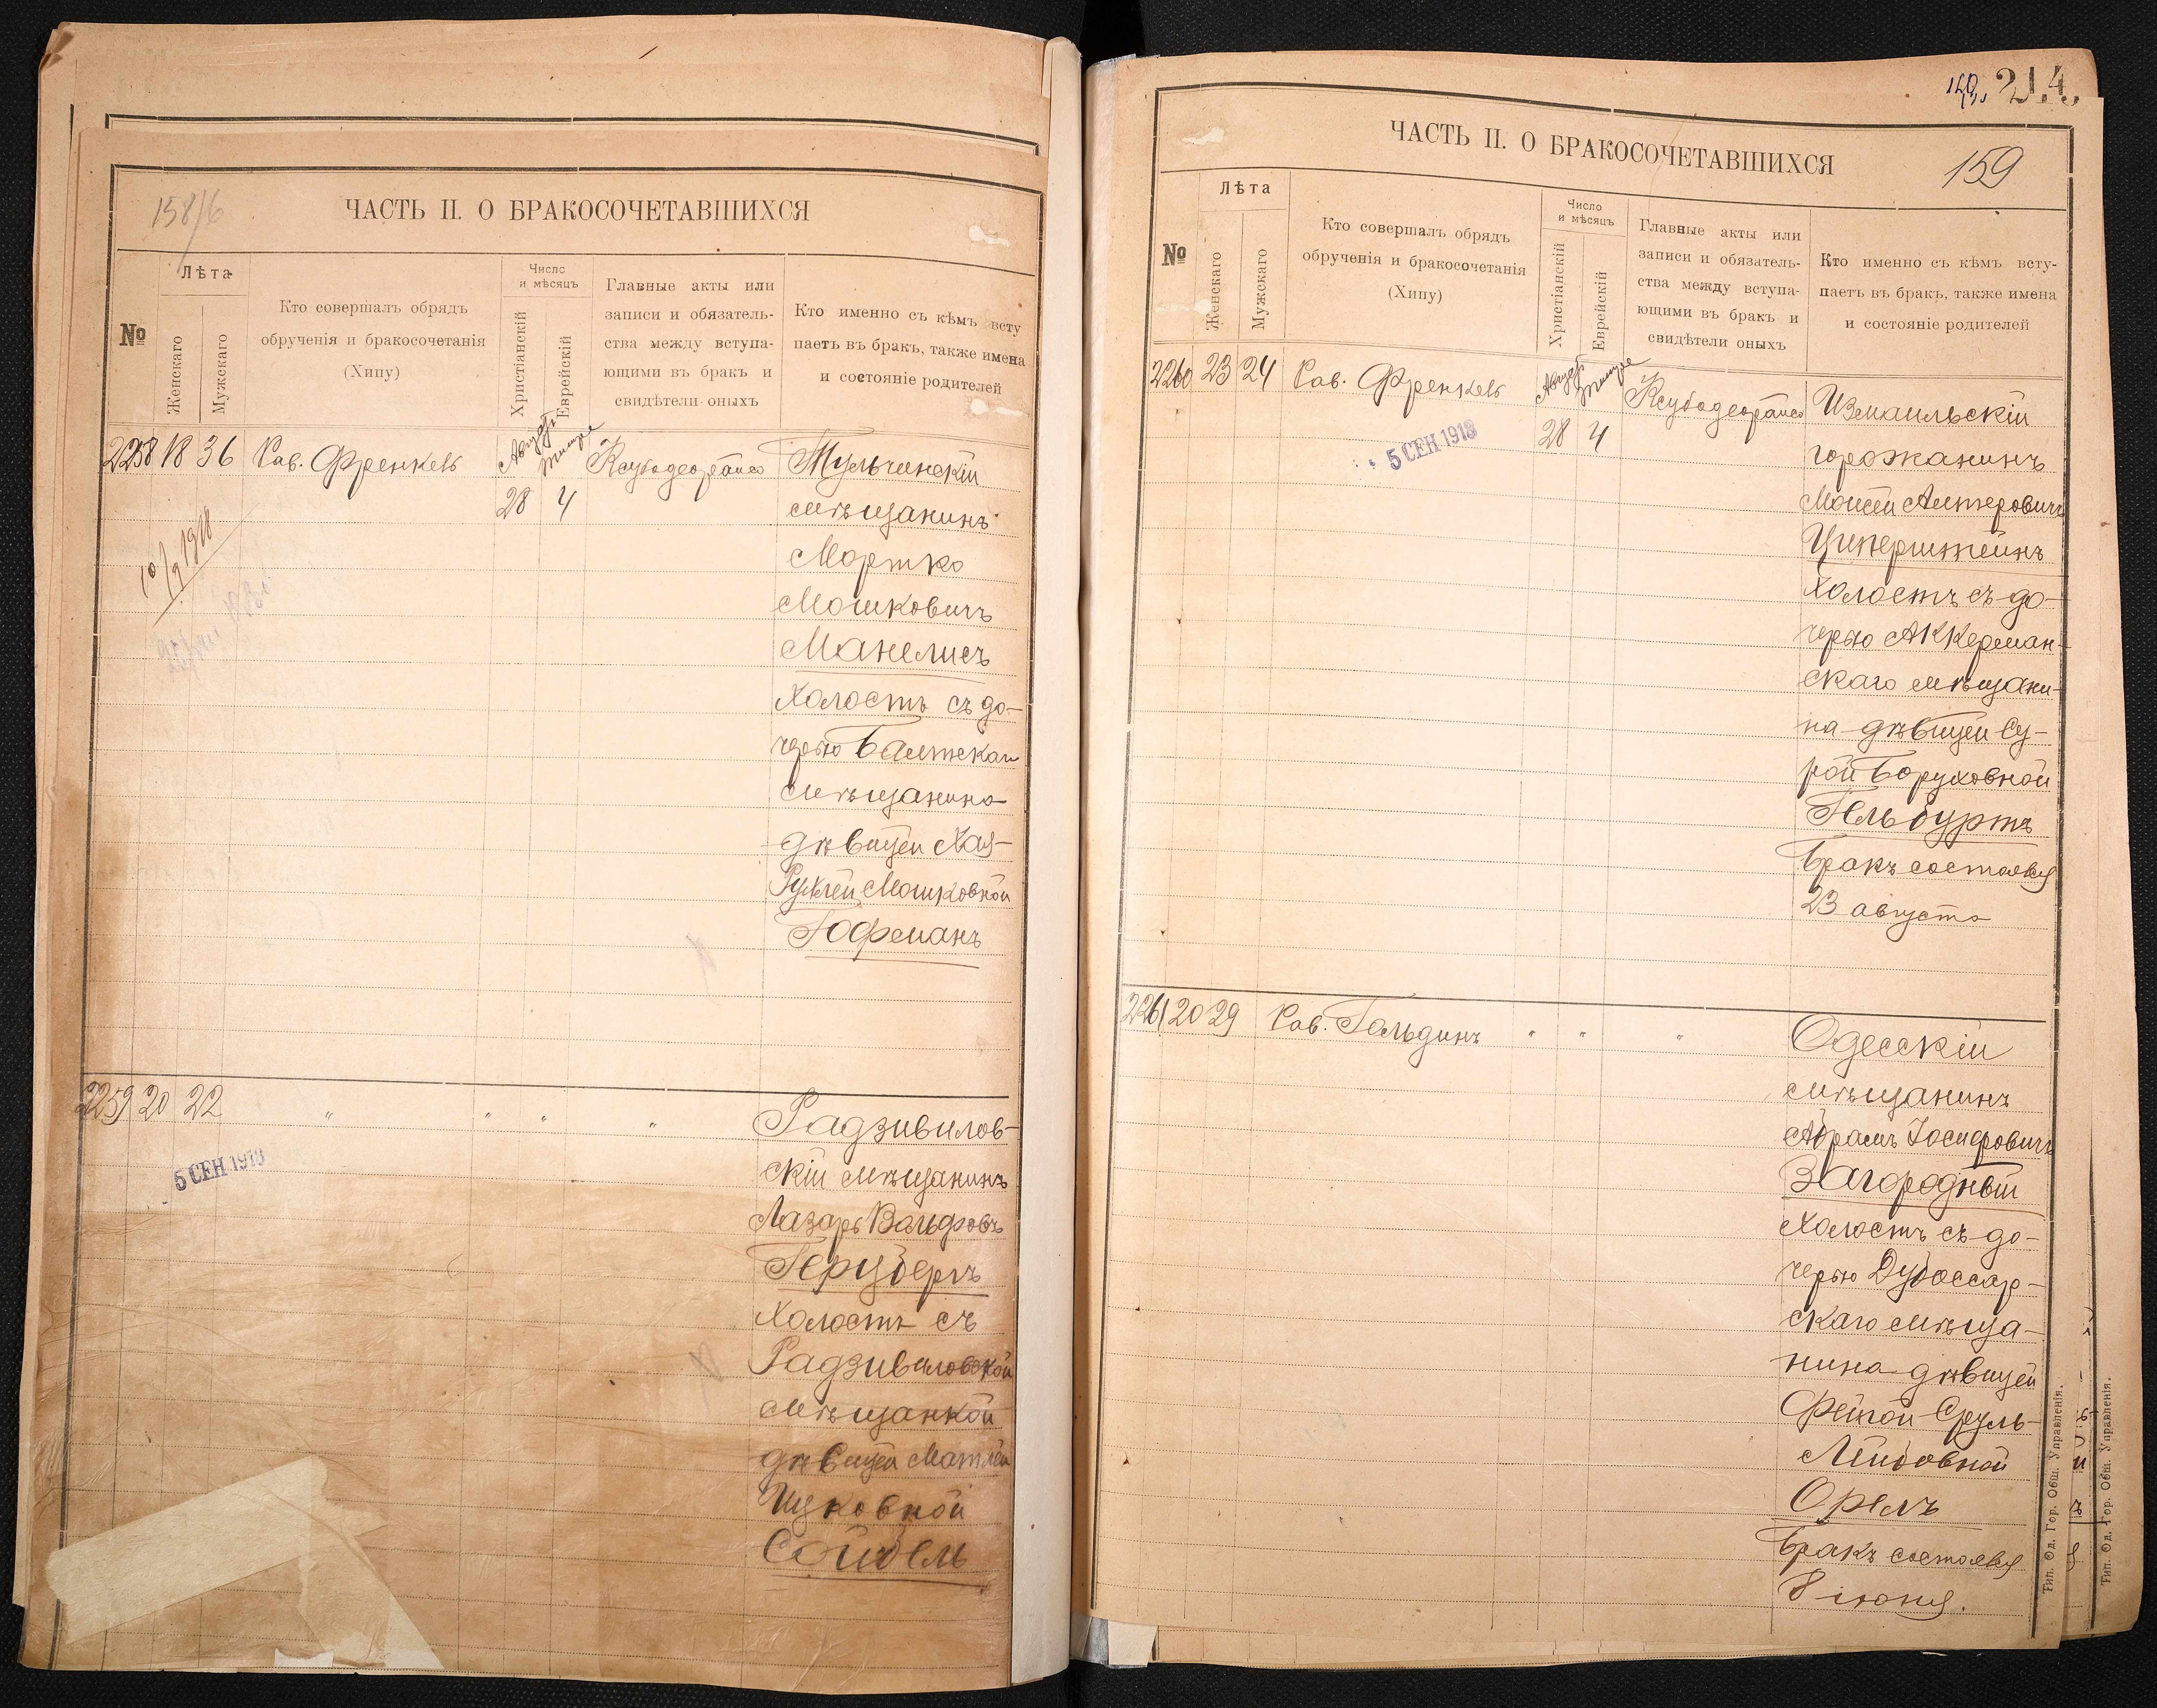 158/б
ЧАСТЬ II. О БРАКОСОЧЕТАВШИХСЯ
№
Лѣта
Женскаго
Мужскаго
Кто совершалъ обрядъ
обрученія и бракосочетанія
(Хипу)
Число
и мѣсяцъ
Христіанскій
Еврейскій
Главные акты или
записи и обязатель-
ства между вступа-
ющими въ бракъ и
свидѣтели оныхъ
Кто именно съ кѣмъ всту
паетъ въ бракъ, также имена
и состояніе родителей
2258 18 36 Рав. Френкель
Августъ
28 4
Тульчинскій
мѣщанинъ
Мортко
Мошковичъ
Манелисъ
Холостъ съ до-
черью Балтскаго
мѣщанина
дѣвицей Хая-
Рухлей Мошковной
Гофманъ
10/9 1918
2259 20 22 " " " "
5 СЕН 1918
Радзивилов-
скій мѣщанинъ
Лазарь Вольфовъ
Герцбергъ
Холостъ съ
Радзивиловской
мѣщанкой
дѣвицей Матлей
Ицковной
Сойбель
214.
ЧАСТЬ II. О БРАКОСОЧЕТАВШИХСЯ
159
№
Лѣта
Женскаго
Мужскаго
Кто совершалъ обрядъ
обрученія и бракосочетанія
(Хипу)
Число
и мѣсяцъ
Христіанскій
Еврейскій
Главные акты или
записи и обязатель-
ства между вступа-
ющими въ бракъ и
свидѣтели оныхъ
Кто именно съ кѣмъ всту-
паетъ въ бракъ, также имена
и состояніе родителей
2260 23 24 Рав. Френкель
Августъ
28 4
5 СЕН 1918
Измаильскій
горожанинъ
Моисей Алтеровичъ
Циперштейнъ
Холостъ съ до-
черью Аккерман-
скаго мѣщани-
на дѣвицей Су-
рой Боруховной
Гельбуртъ
Бракъ состоялся
23 августа
2261 20 29 Рав. Гольдинъ " " "
Одесскій
мѣщанинъ
Абрамъ Іосифовичъ
Загородный
Холостъ съ до-
черью Дубоссар-
скаго мѣща-
нина дѣвицей
Фейгой Сруль-
Лейбовной
Орелъ
Бракъ состоялся
8 іюня.
Тип. Од. Гор. Общ. Управленія.
Тип. Од. Гор. Общ. Управленія.